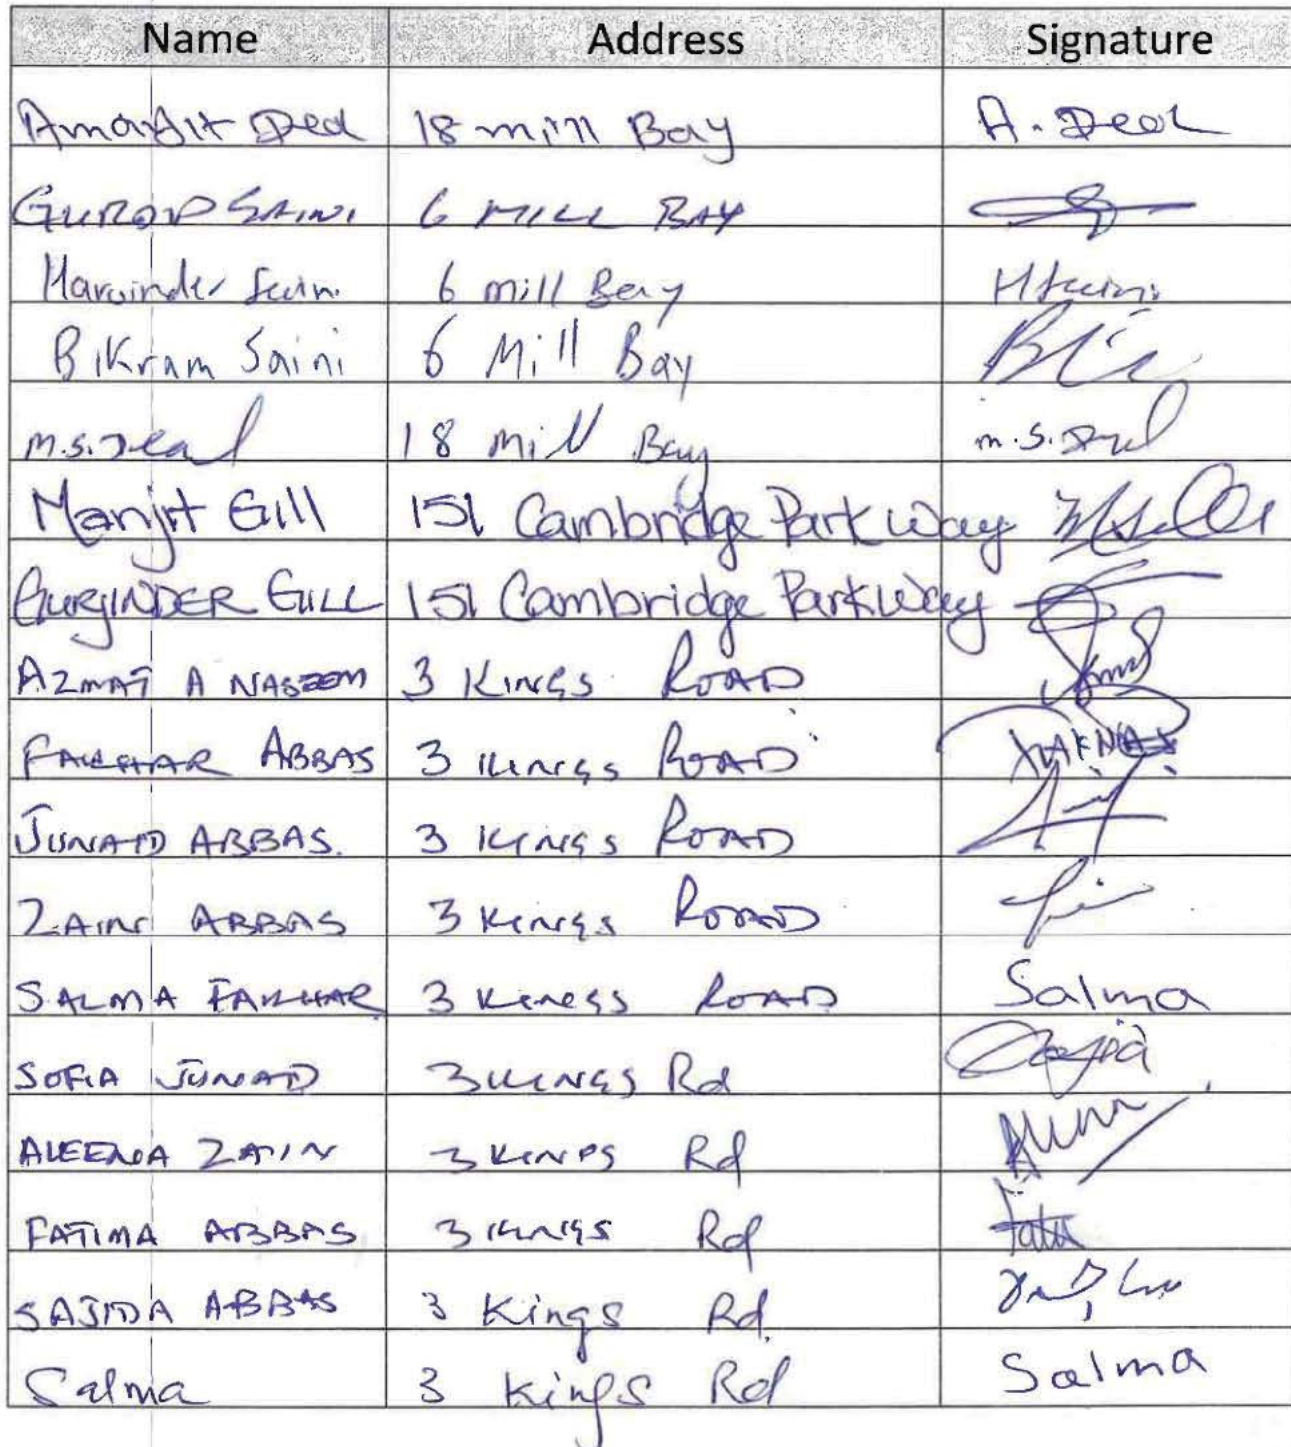 Name Address Signature
Amarjit Deol 18 mill Bay A. Deol
GUROP SAINI 6 MILL BAY
Harvinder Saini 6 mill Bay HSaini
Bikram Saini 6 Mill Bay
m.s. Deol 18 Mill Bay m.s. Deol
Manjit Gill 151 Cambridge Park Way
GURJINDER GILL 151 Cambridge ParkWay
AZMAT A NASEEM 3 KINGS ROAD
FAKHAR ABBAS 3 KINGS ROAD
JUNAID ABBAS. 3 KINGS ROAD
ZAIN ABBAS 3 KINGS ROAD
SALMA FAKHAR 3 KINGS ROAD Salma
SOFIA JUNAID 3 KINGS Rd Sofia
ALEENA ZAIN 3 KINGS Rd
FATIMA ABBAS 3 KINGS Rd
SAJIDA ABBAS 3 Kings Rd.
Salma 3 Kings Rd Salma